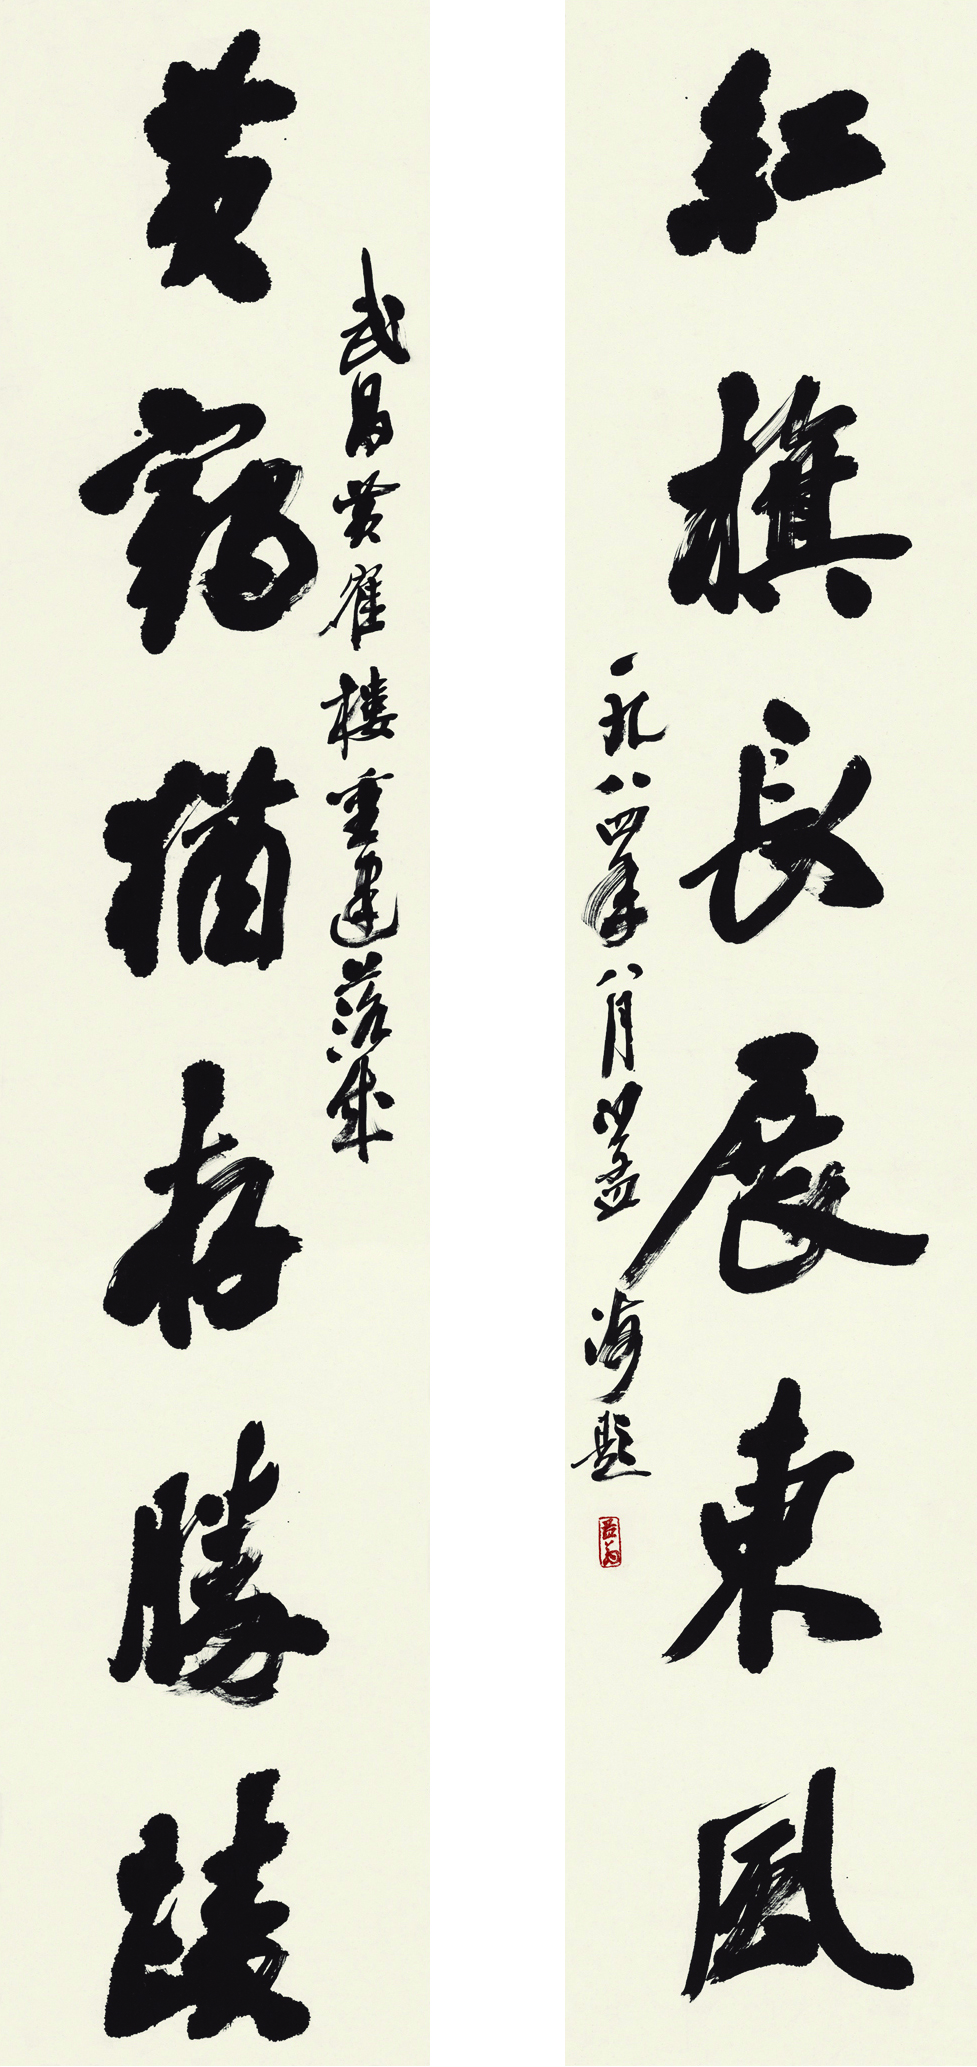 紅旗長展東風
一九八四年八月沙孟海題
武昌黄隺樓重建落成
黄鶴猶存勝蹟